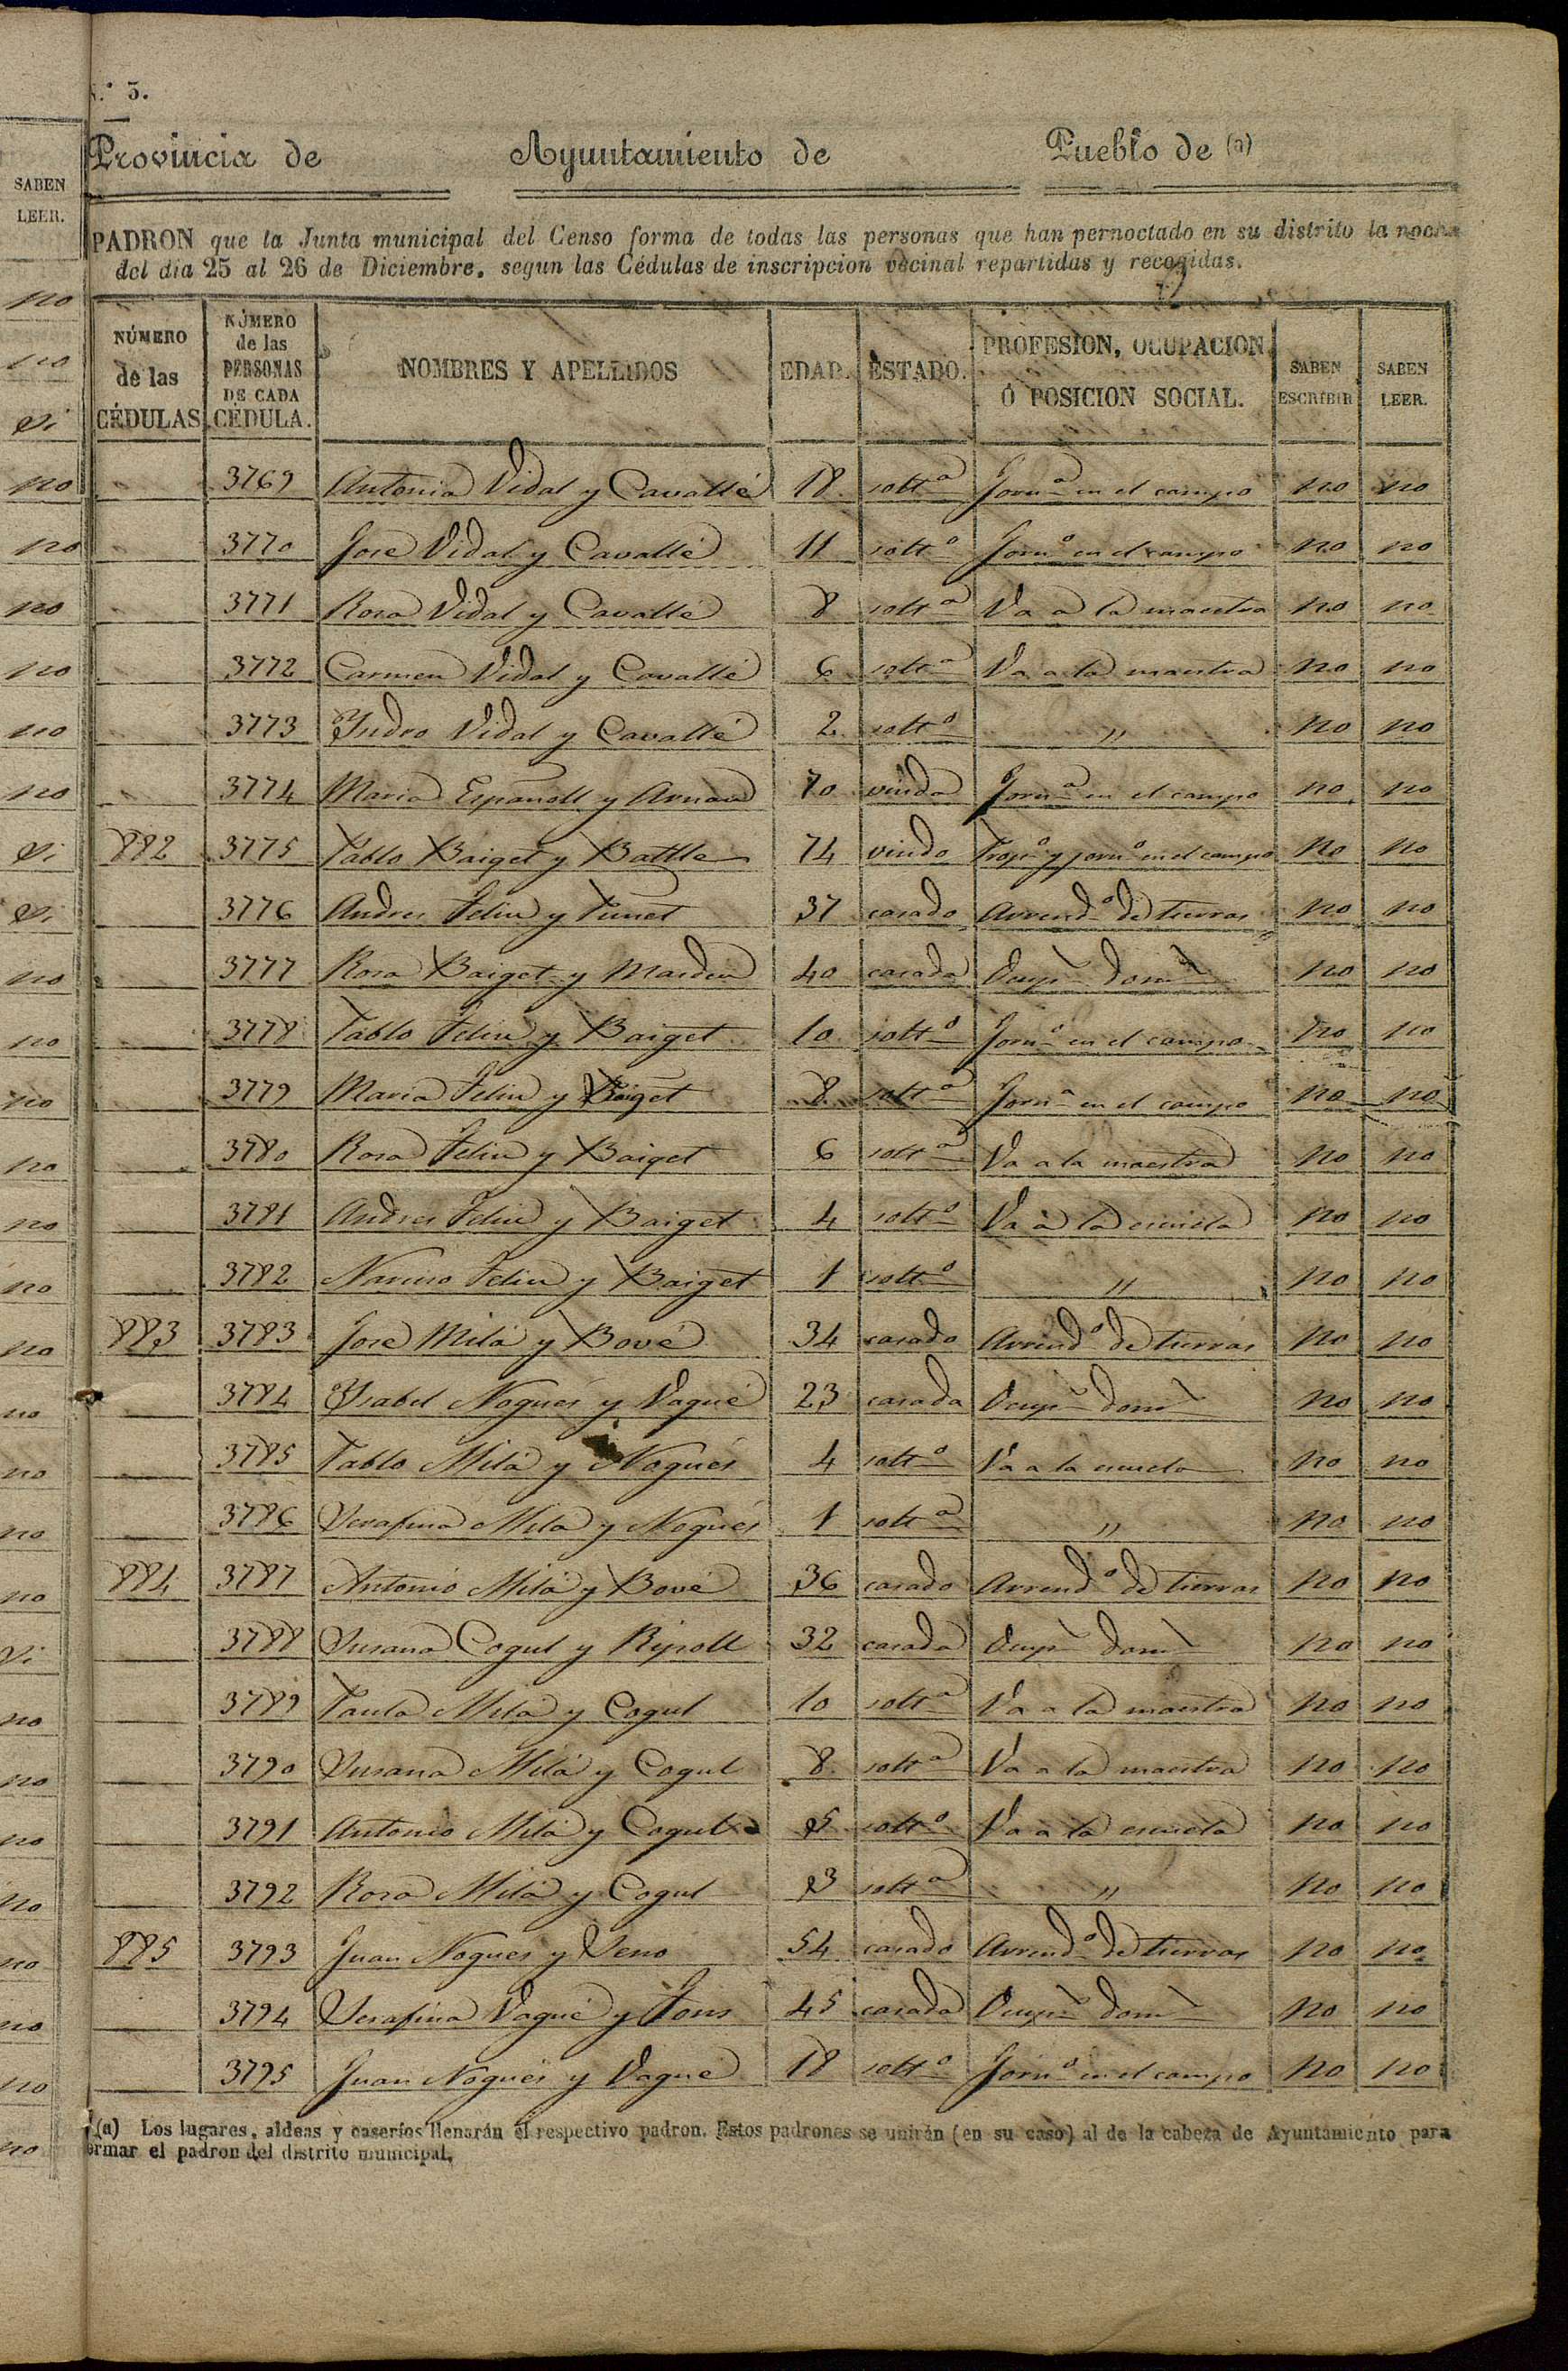 N.° 5.
Provincia de Ayuntamiento de Pueblo de (a)
PADRON que la Junta municipal del Censo forma de todas las personas que han pernoctado en su distrito la noche
del dia 25 al 26 de Diciembre, segun las Cédulas de inscripcion vecinal repartidas y recogidas.
NÚMERO de las CÉDULAS. NÚMERO de las PERSONAS DE CADA CÉDULA. NOMBRES Y APELLIDOS EDAD. ESTADO. PROFESION, OCUPACION Ó POSICION SOCIAL. SABEN ESCRIBIR SABEN LEER.
3769 Antonia Vidal y Cavallé 18 soltª Jornª en el campo no no
3770 Jose Vidal y Cavallé 11 soltº Jornº en el campo no no
3771 Rosa Vidal y Cavallé 8 soltª Va a la maestra no no
3772 Carmen Vidal y Cavallé 6 soltª Va a la maestra no no
3773 Ysidro Vidal y Cavallé 2 soltº " no no
3774 Maria Espanoll y Arnau 70 viuda Jornª en el campo no no
882 3775 Pablo Baiget y Battle 74 viudo Propº y jornº en el campo no no
3776 Andres Feliu y Punet 37 casado Arrendº de tierras no no
3777 Rosa Baiget y Masdeu 40 casada Ocupn domn no no
3778 Pablo Feliu y Baiget 10 soltº Jornº en el campo no no
3779 Maria Feliu y Baiget 8 soltª Jornª en el campo no no
3780 Rosa Feliu y Baiget 6 soltª Va a la maestra no no
3781 Andres Feliu y Baiget 4 soltº Va a la escuela no no
3782 Narciso Feliu y Baiget 1 soltº " no no
883 3783 Jose Milá y Bové 34 casado Arrendº de tierras no no
3784 Ysabel Nogués y Vagué 23 casada Ocupn domn no no
3785 Pablo Milá y Nogués 4 soltº Va a la escuela no no
3786 Serafina Milá y Nogués 1 soltª " no no
884 3787 Antonio Milá y Bové 36 casado Arrendº de tierras no no
3788 Susana Cogul y Ripoll 32 casada Ocupn domn no no
3789 Paula Milá y Cogul 10 soltª Va a la maestra no no
3790 Susana Milá y Cogul 8 soltª Va a la maestra no no
3791 Antonio Milá y Cogul 5 soltº Va a la escuela no no
3792 Rosa Milá y Cogul 3 soltª " no no
885 3793 Juan Nogues y Seno 54 casado Arrendº de tierras no no
3794 Serafina Vagué y Fons 45 casada Ocupn domn no no
3795 Juan Nogués y Vagué 18 soltº Jornº en el campo no no
(a) Los lugares, aldeas y caseríos llenarán el respectivo padron. Estos padrones se unirán (en su caso) al de la cabeza de Ayuntamiento para
ormar el padron del distrito municipal.